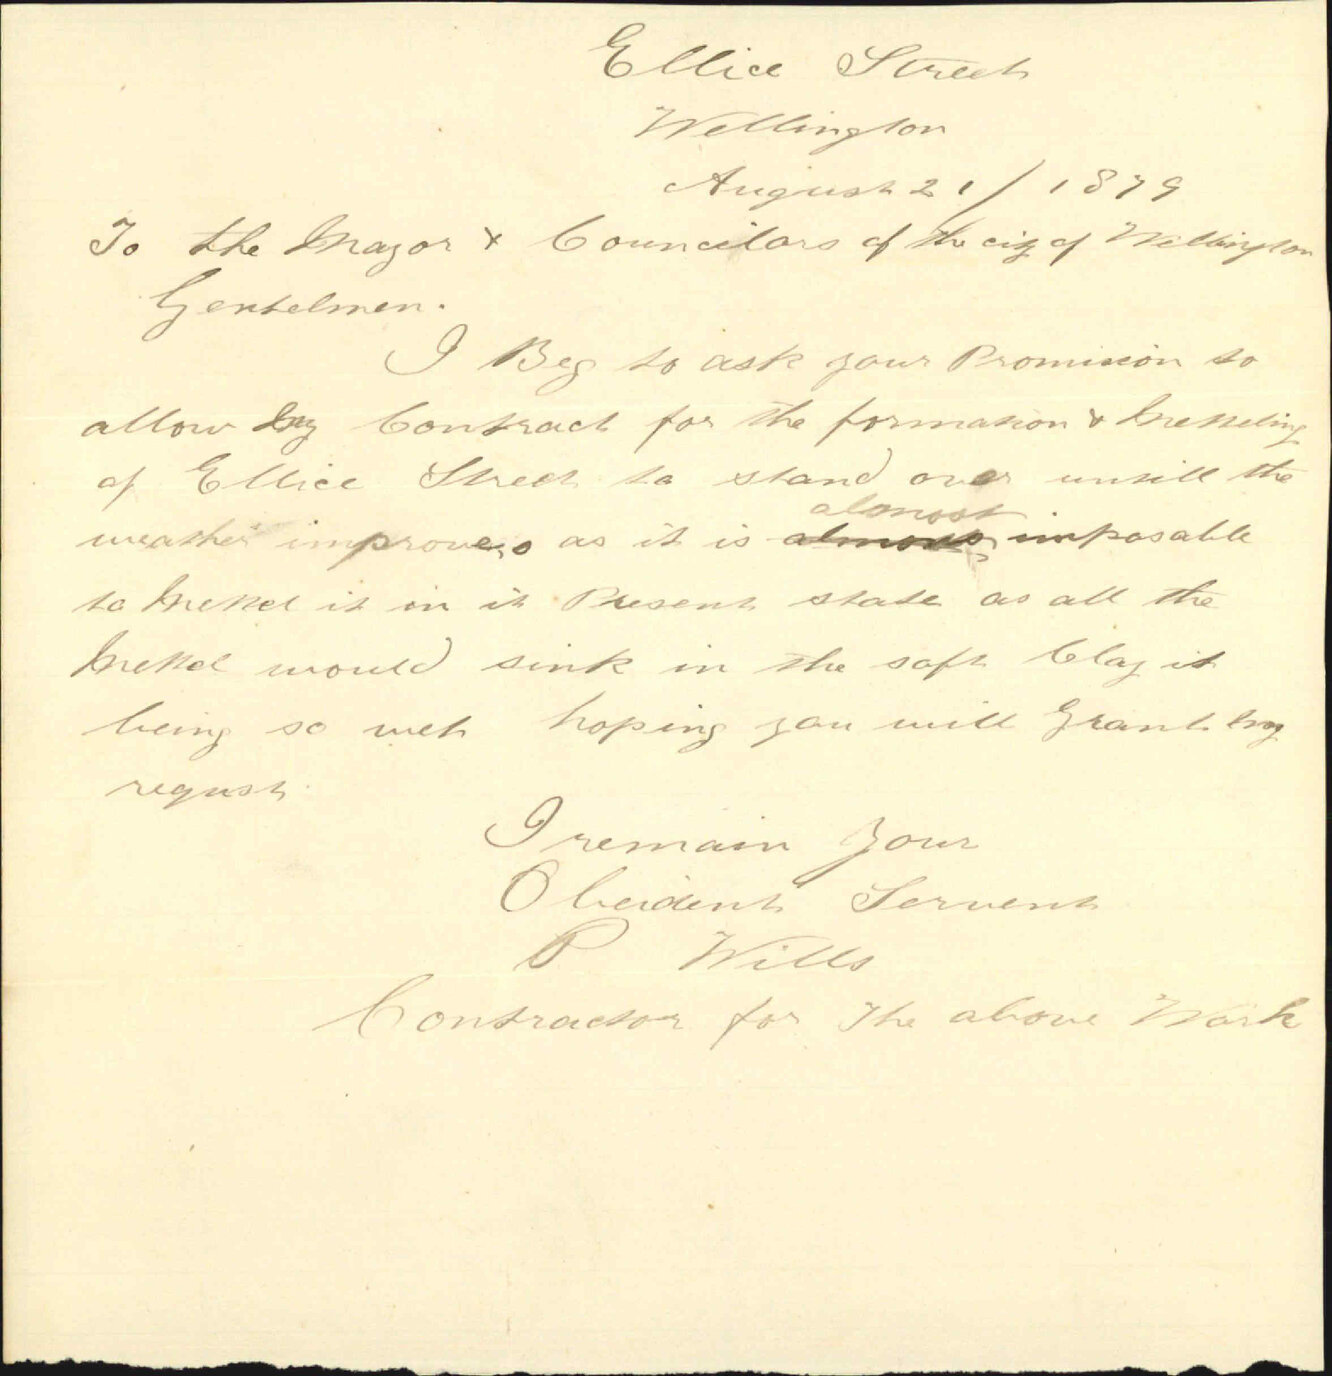 Ellice Street
Wellington
August 21/1879
To the Mayor & Councilors of the city of Wellington
Gentelmen.
I Beg to ask your Promision to
allow my Contract for the formation & Metteling
of Ellice Street to stand over untill the
weather improves as it is almost imposable
to Mettel it in it Present state as all the
Mettel would sink in the soft Clay it
being so wet hoping you will Grant my
requst
I remain your
Obeident Servent
P Wills
Contractor for The above Work